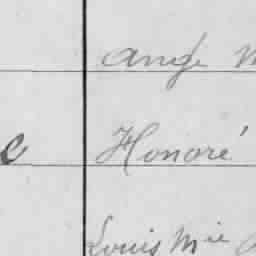 Ange
c Honoré
Louis Mie